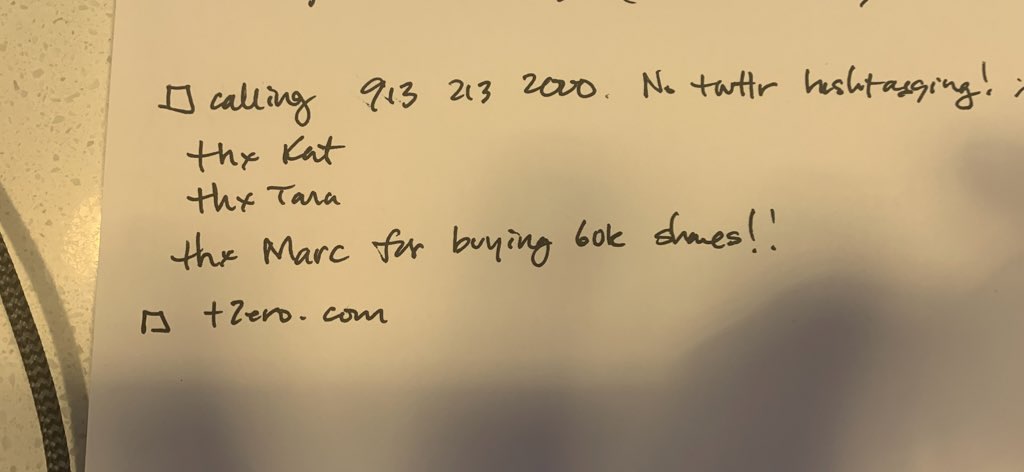 ☐ calling 913 213 2000. No twttr hashtagging!
thx Kat
thx Tara
thx Marc for buying 60k shares!!
☐ tZero.com